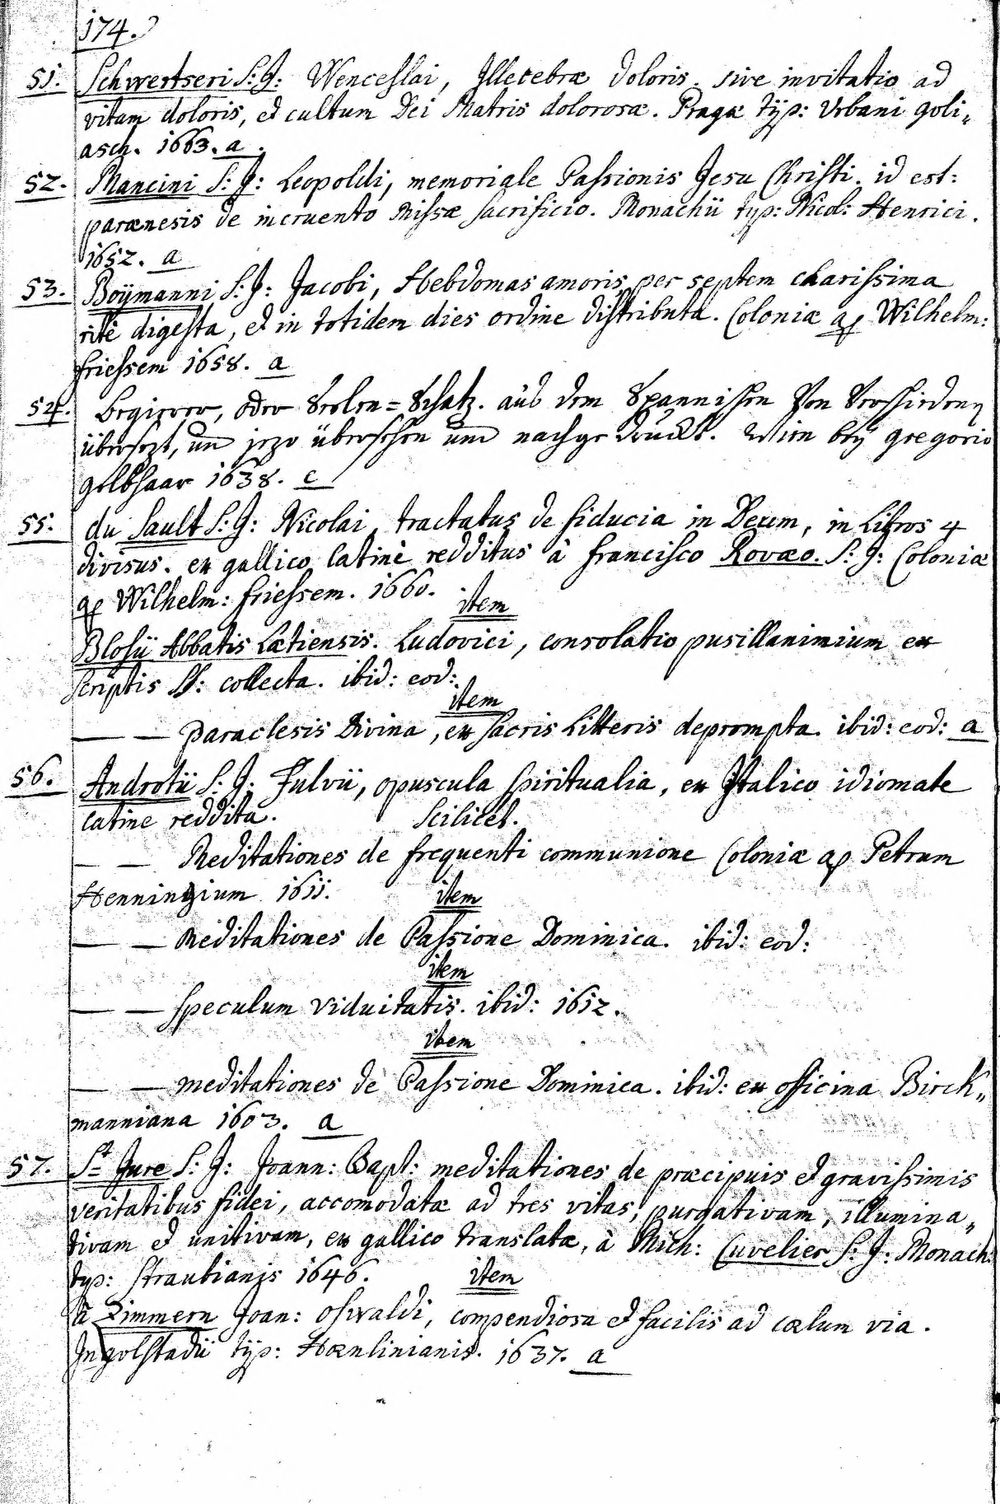 174.
51. Schwertseri S: J: Wenceslai, Illecebræ doloris, sive invitatio ad
vitam doloris, et cultum Dei Matris dolorosæ. Pragæ typ: Urbani Goli„
asch. 1663. a.
52. Mancini S: J: Leopoldi, memoriale Passionis Jesu Christi. id est:
parænesis de incruento Missæ sacrificio. Monachii typ: Nicol: Henrici.
1652. a
53. Boÿmanni S: J: Jacobi, Hebdomas amoris, per septem charissima
rite digesta, et in totidem dies ordine distributa. Coloniæ ap Wilhelm:
friessem 1658. a
54. Begierer, oder Seelen=Schatz. auß dem Spannischen Von Verschiedenen
übersezt, und jezo übersehen und nachgedruckt. Wien beÿ Gregorio
gelbhaar 1638. c
55. du Sault S: J: Nicolai, tractatus de fiducia in Deum, in Libros 4
divisus. ex gallico latinè redditus à Francisco Rovæo. S: J: Coloniæ
ap Wilhelm: friessem. 1660.
item
Blosÿ Abbatis Lætiensis. Ludovici, consolatio pusillanimium ex
scriptis S: collecta. ibid: eod:
item
— — Paraclesis Divina, ex sacris Litteris deprompta. ibid: eod: a
56. Androtii S: J: Fulvii, opuscula spiritualia, ex Italico idiomate
latine reddita. scilicet.
— — Meditationes de frequenti communione Coloniæ ap Petrum
Henningium 1611. item
— — Meditationes de Passione Dominica. ibid: eod:
item
— — speculum viduitatis. ibid: 1612.
item
— — meditationes de Passione Dominica. ibid: ex officina Birck„
manniana 1603. a
57. St Jure S: J: Joann: Bapt: meditationes de præcipuis et gravissimis
veritatibus fidei, accomodatæ ad tres vitas, purgativam, illumina„
tivam et unitivam, ex gallico translatæ, à Mich: Cuvelier S: J: Monach:
typ: Straubianis 1646. item
à Zimmern Joan: Oswaldi, compendiosa et facilis ad cælum via.
Ingolstadii typ: Hænlinianis. 1637. a